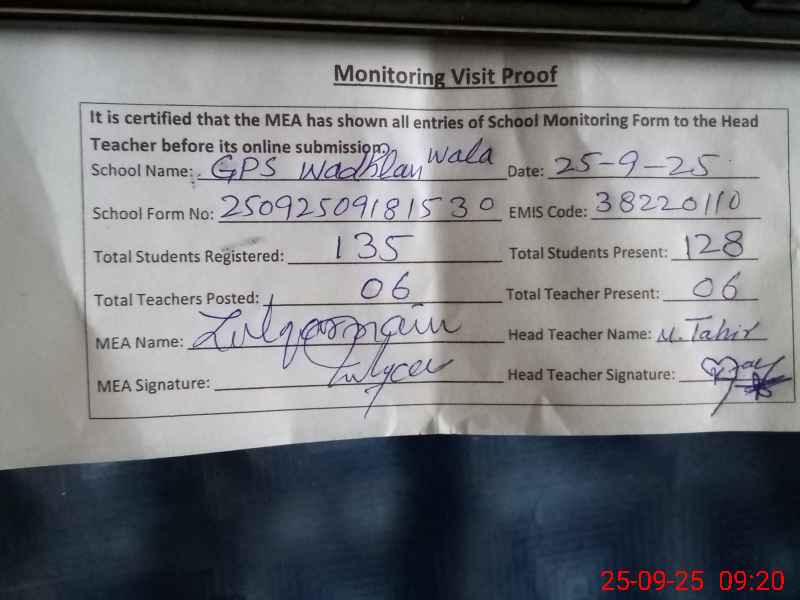 Monitoring Visit Proof
It is certified that the MEA has shown all entries of School Monitoring Form to the Head
Teacher before its online submission.
School Name: GPS Wadhlan wala Date: 25-9-25
School Form No: 25092509181530 EMIS Code: 38220110
Total Students Registered: 135 Total Students Present: 128
Total Teachers Posted: 06 Total Teacher Present: 06
MEA Name: Zulqarnain Head Teacher Name: M. Tahir
MEA Signature: Head Teacher Signature:
25-09-25 09:20